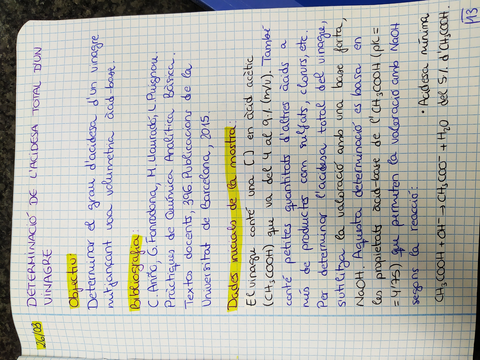 26/03
DETERMINACIÓ DE L'ACIDESA TOTAL D'UN
VINAGRE
Objectiu:
Determinar el grau d'acidesa d'un vinagre
mitjançant una volumetria àcid-base.
Bibliografia:
C. Ariño, G. Fonrodona, M. Llauradó, L. Puignou.
Pràctiques de Química Analítica Bàsica.
Textos docents, 396. Publicacions de la
Universitat de Barcelona, 2015.
Dades inicials de la mostra:
El vinagre conté una [ ] en àcid acètic
(CH₃COOH) que va del 4 al 9% (m/v). També
conté petites quantitats d'altres àcids a
més de productes com sulfats, clorurs, etc.
Per determinar l'acidesa total del vinagre,
s'utilitza la valoració amb una base forta,
NaOH. Aquesta determinació es basa en
les propietats àcid-base de l'CH₃COOH (pk=
=4'75) que permeten la valoració amb NaOH
segons la reacció: • Acidesa mínima
CH₃COOH + OH⁻ → CH₃COO⁻ + H₂O del 5% d'CH₃COOH.
13